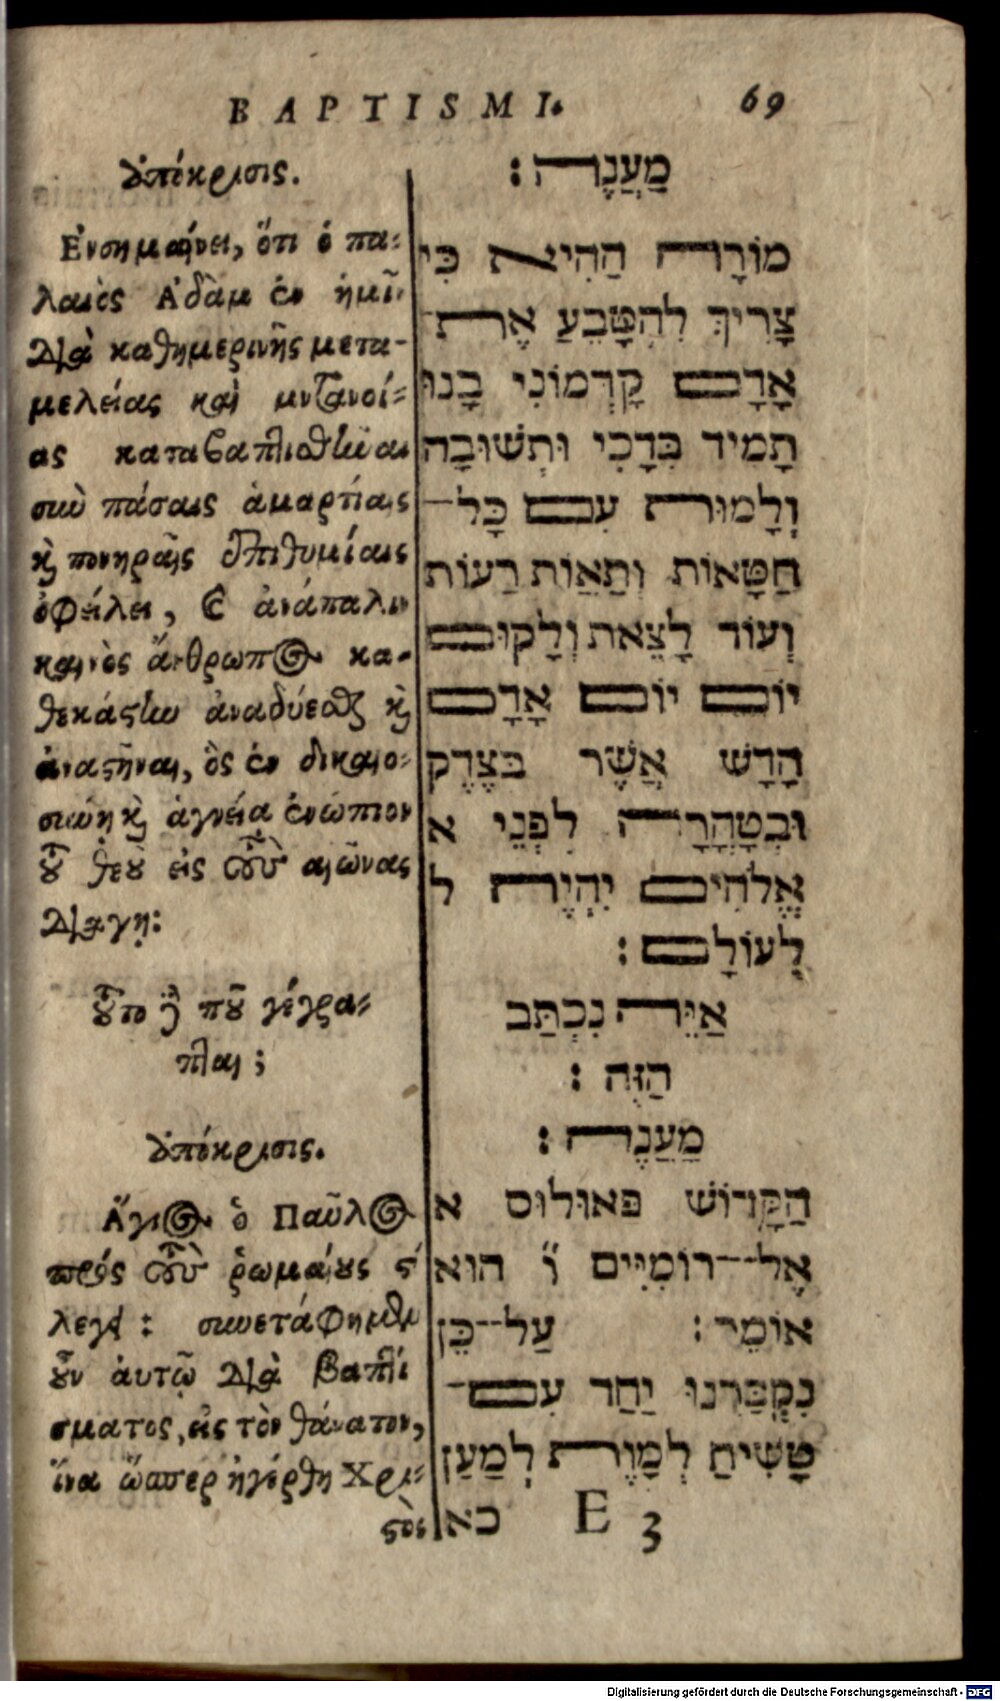 BAPTISMI.
69
Ὑπόκρισις.
Ἐνσημαίνει, ὅτι ὁ πα-
λαιὸς Ἀδὰμ ἐν ἡμῖν
διὰ καθημερινῆς μετα-
μελείας καὶ μετανοί-
ας καταβαπτισθῆναι
σὺν πάσαις ἁμαρτίαις
καὶ πονηραῖς ἐπιθυμίαις
ὀφείλει, καὶ ἀνάπαλιν
καινὸς ἄνθρωπος κα-
θεκάστην ἀναδύεσθαι καὶ
ἀναστῆναι, ὃς ἐν δικαιο-
σύνῃ καὶ ἁγνείᾳ ἐνώπιον
τοῦ θεοῦ εἰς τοὺς αἰῶνας
διάγῃ:
τοῦτο δὲ ποῦ γέγρα-
πται;
Ὑπόκρισις.
Ἅγιος ὁ Παῦλος
πρὸς τοὺς ῥωμαίους ϛʹ
λέγει: συνετάφημεν
οὖν αὐτῷ διὰ βαπτί
σματος, εἰς τὸν θάνατον,
ἵνα ὥσπερ ἠγέρθη Χρι-
στὸς
מַעֲנֶה :
מוֹרָה הַהִיא כִּי
צָרִיךְ לְהִטָּבַע אֶת־
אָדָם קַדְמוֹנִי בָנוּ
תָמִיד בִּדָכִי וּתְשׁוּבָה
וְלָמוּת עִם כָּל־
חַטָּאוֹת וְתַאֲוֹת רַעוֹת
וְעוֹד לָצֵאת וְלָקוּם
יוֹם יוֹם אָדָם
הָדָשׁ אֲשֶׁר בְּצֶדֶק
וּבְטָהֳרָה לִפְנֵי א
אֱלֹהִים יִהְיֶה ל
לְעוֹלָם :
אַיֵּה נִכְתַּב
הַזֶּה :
מַעֲנֶה :
הַקָּדוֹשׁ פּאוּלוּס א
אֶל־־רוֹמִיִּים וֹ הוּא
אוֹמֵר : עַל־־כֵּן
נִקְבַּרְנוּ יַחַד עִם־
טָשִׁיחַ לְמָוֶת לְמַעַן
כא
E 3
Digitalisierung gefördert durch die Deutsche Forschungsgemeinschaft - DFG